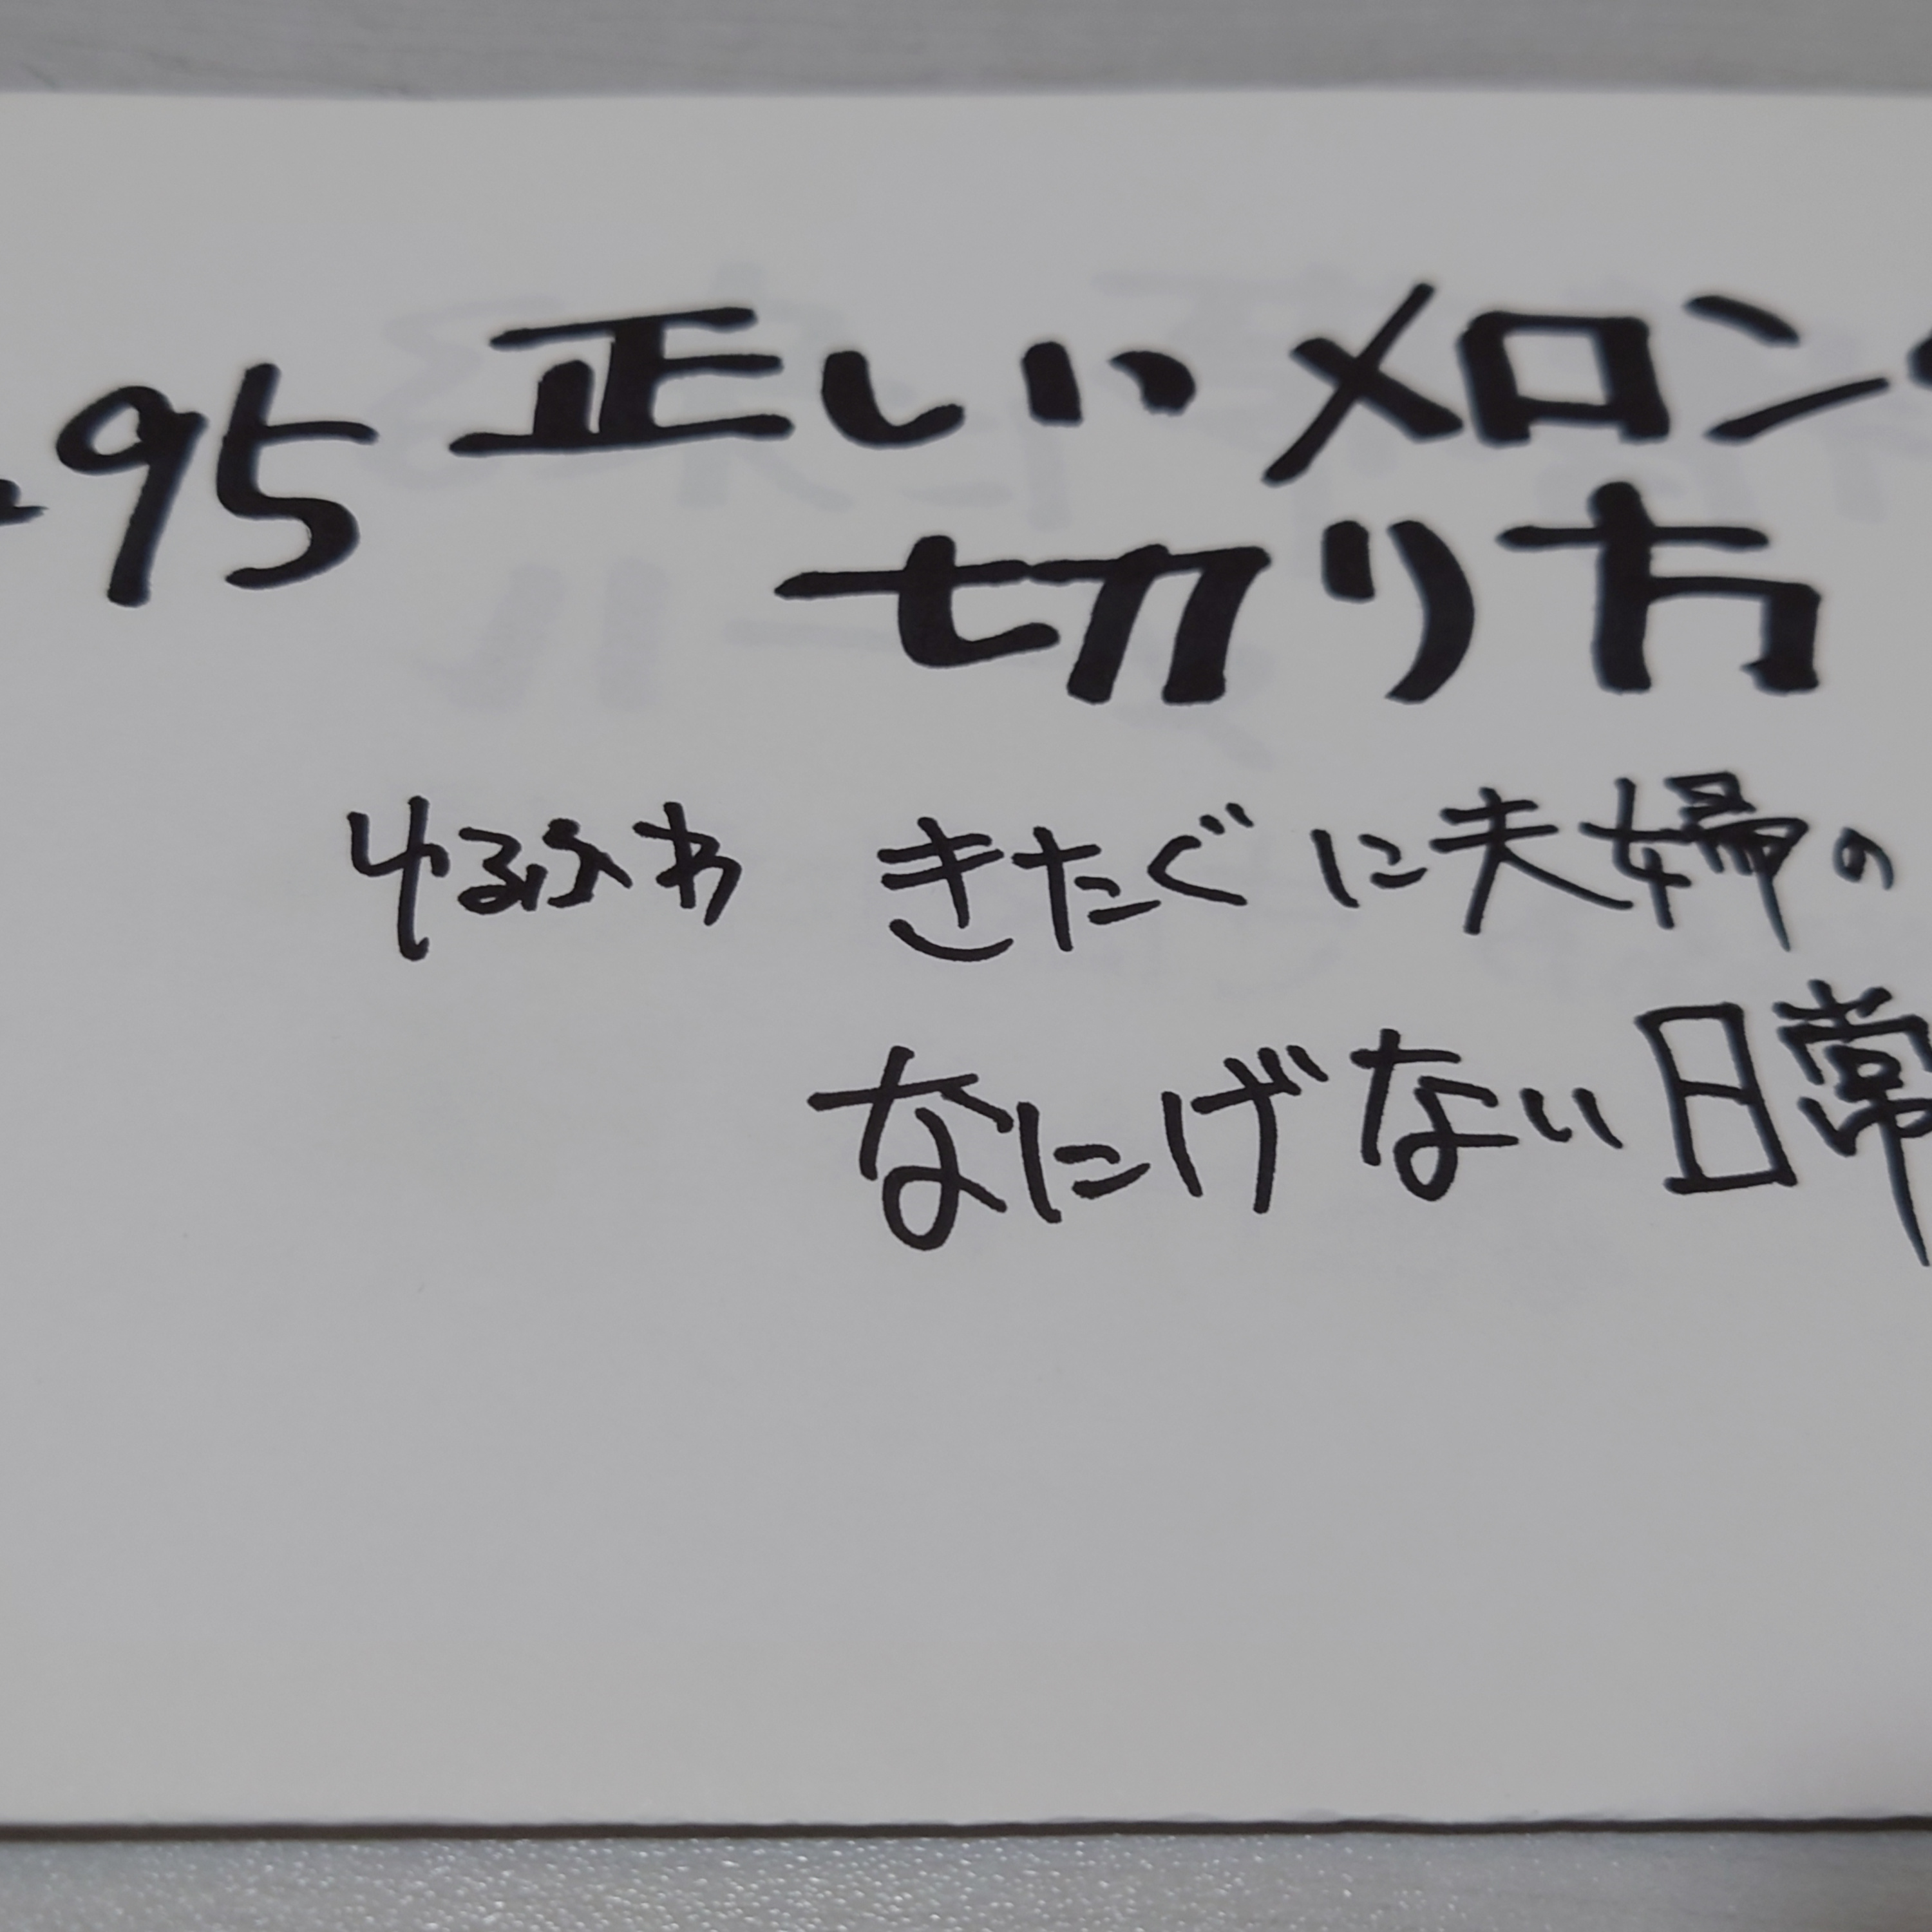 95 正しいメロン
切り方
ゆるふわ きたぐに夫婦の
なにげない日常